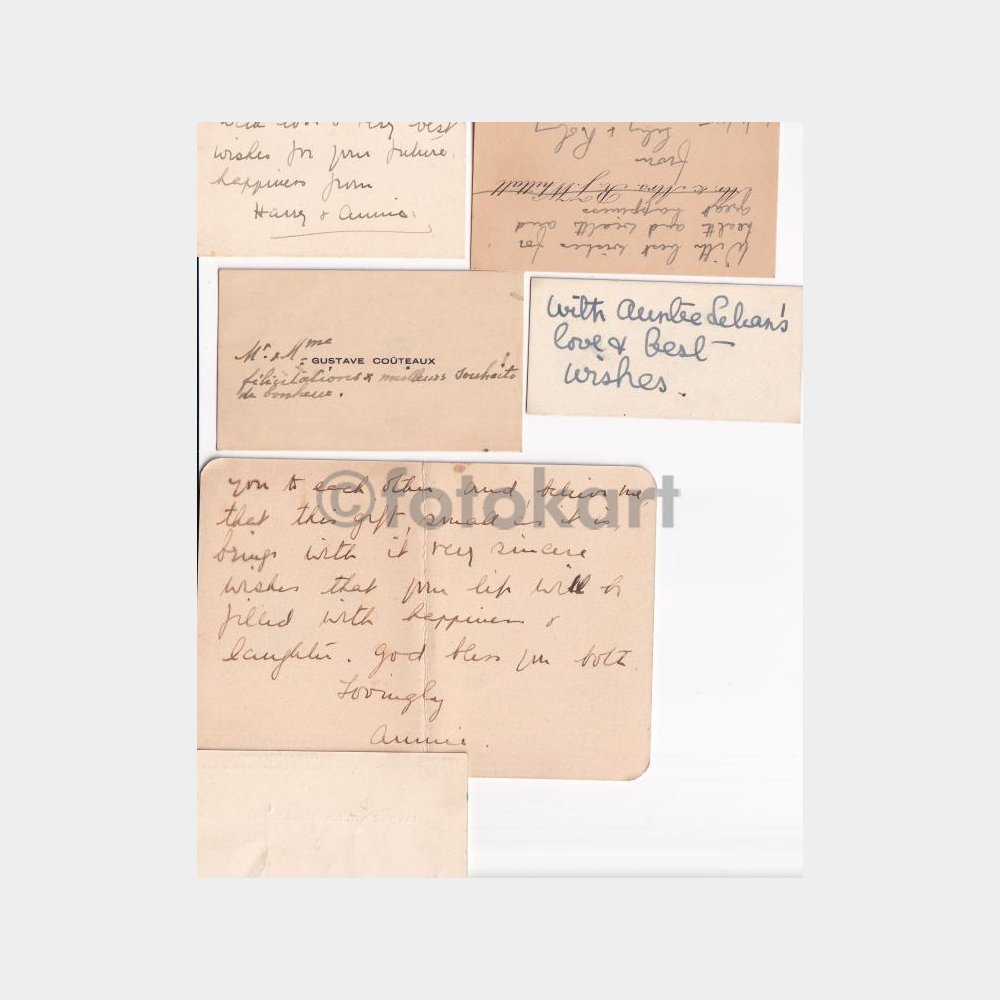 very best
wishes for your future
happiness from
Harry & Annie.
With best wishes for
health and wealth and
great happiness
Mr. & Mrs. R. J. Whittall
from
Mr. & Mme
GUSTAVE COÛTEAUX
félicitations & meilleurs souhaits
de bonheur.
With Auntee
love & best
wishes.
©fotokart
you to each other and, believe me,
that this gift, small as it is,
brings with it very sincere
wishes that your life will be
filled with happiness &
laughter. God bless you both.
Lovingly
Annie.